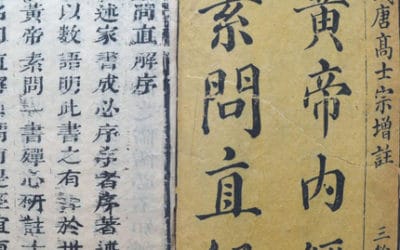 唐高士宗增註 三
黃帝內
素問直
問直解序
述家書成必序序者序著
以數語明此書之有於世
黃帝素問一書殫心研註